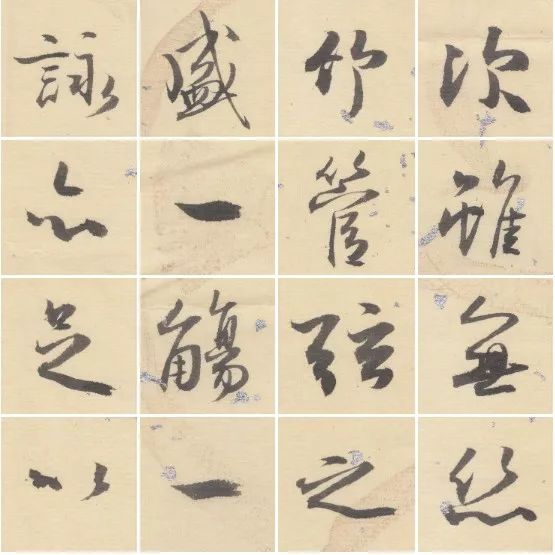 次雖無絲
竹管弦之
盛一觴一
詠亦足以